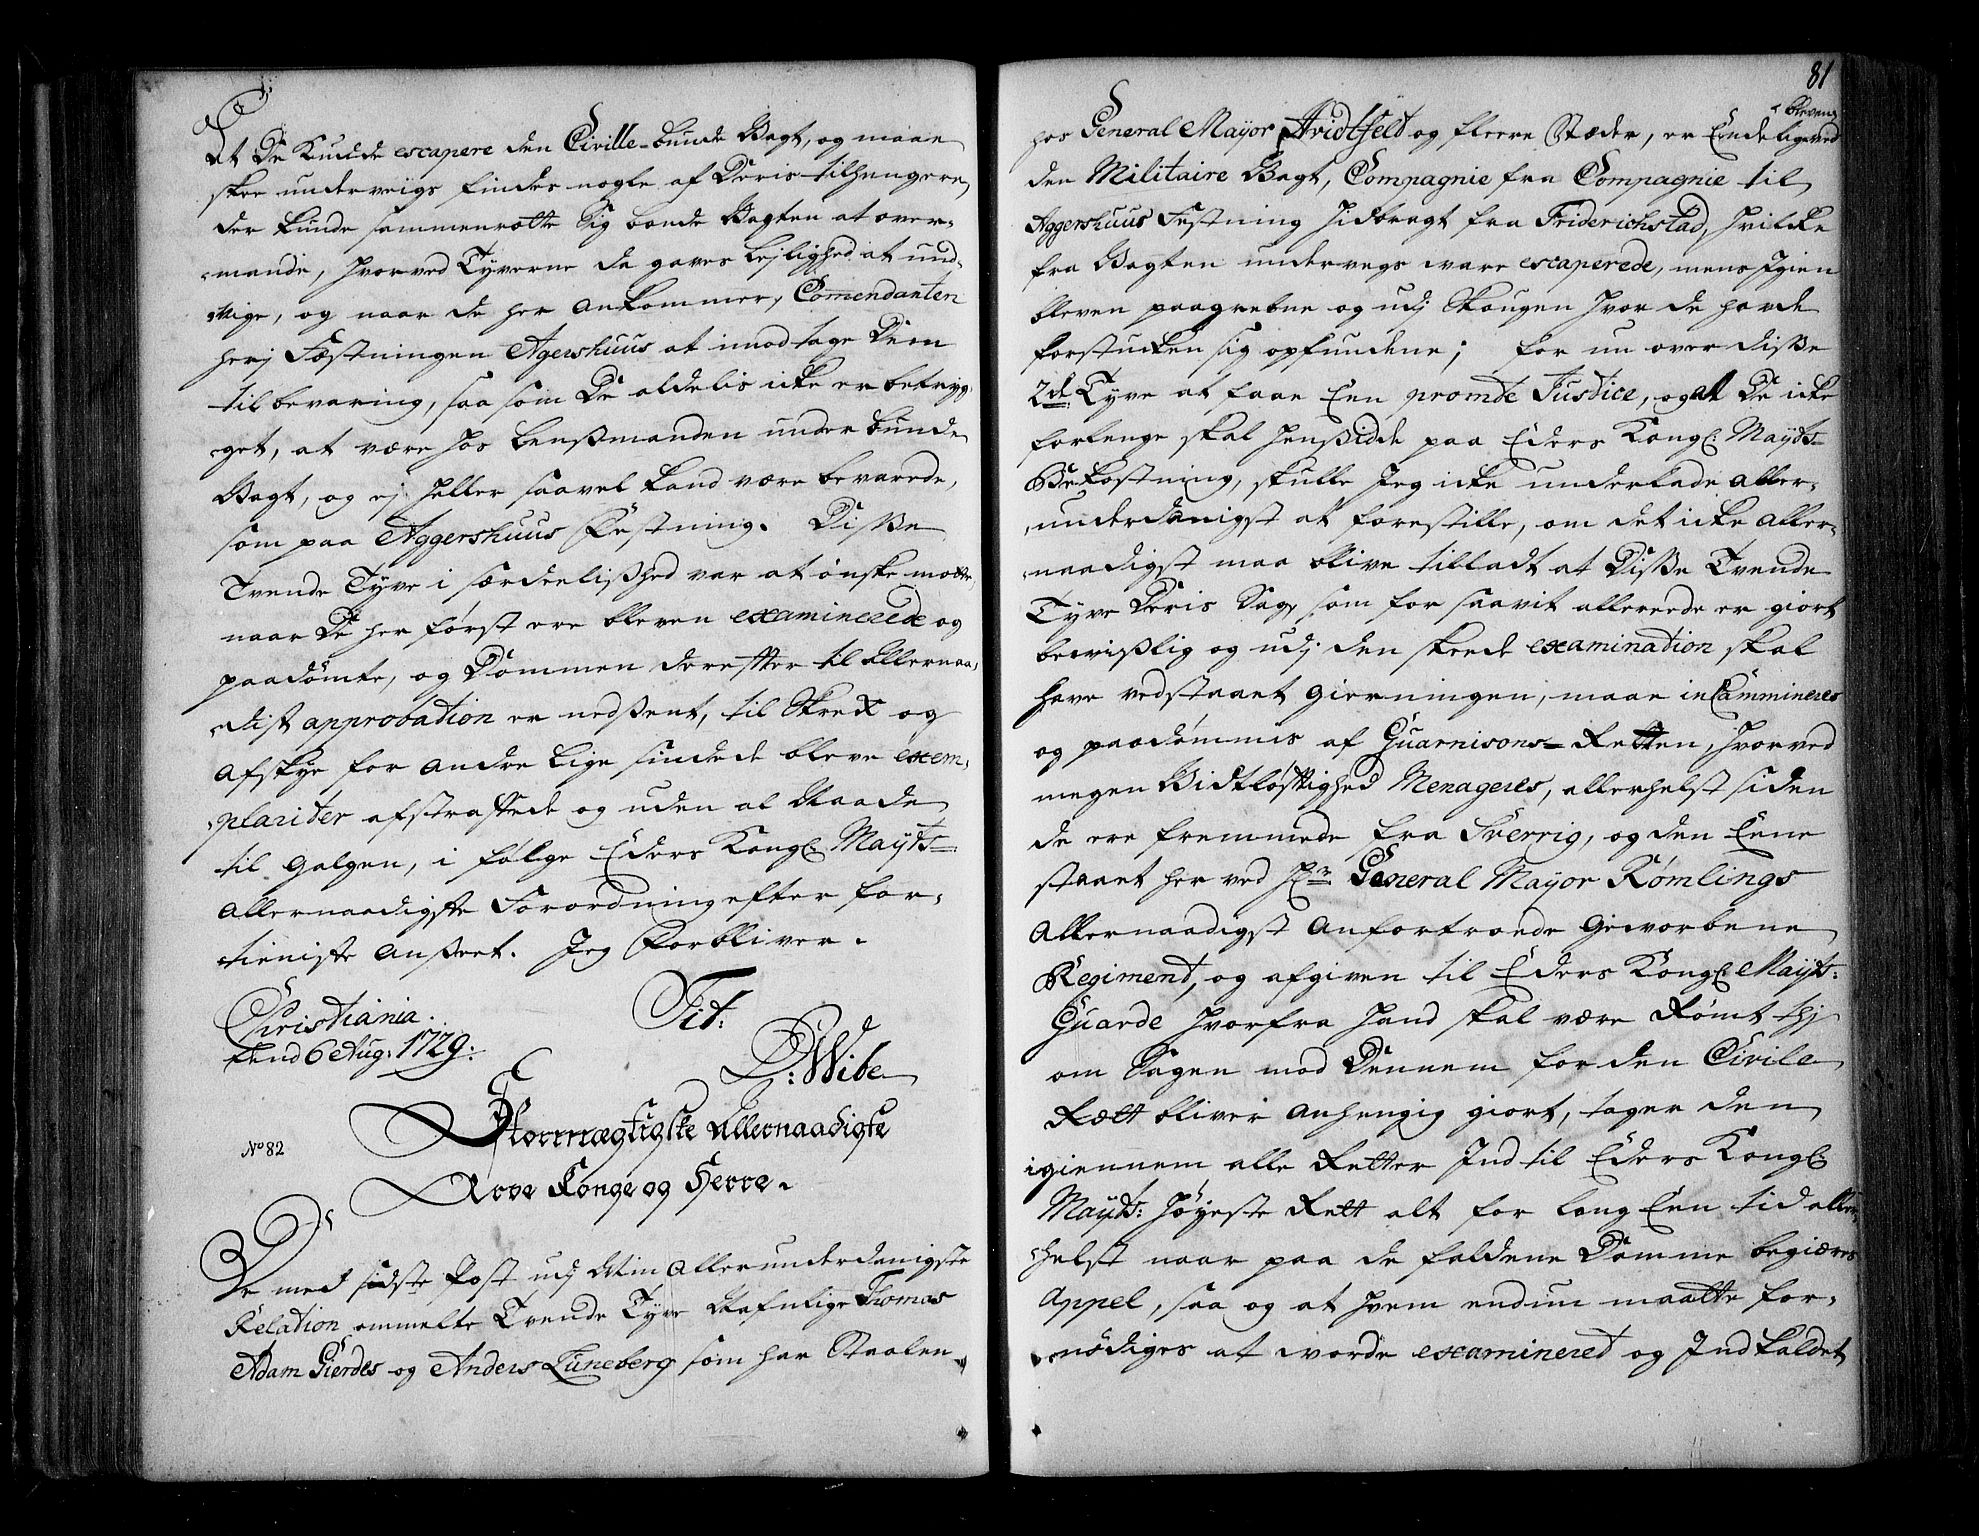 At De kunde escapere den Civille-bunde Vagt, og maae
skee underveigs findes nogle af Deris tilhengere,
der kunde sammenrotte Sig bonde Vagten at over-
mande, hvorved Tyverne da gaves lejlighed at und-
vige, og naar de her ankommer, Comendanten
herj Fæstningen Agershuus at imodtage Dem
til bevaring, saa som De aldelis icke er betryg-
get, at være hos lensmanden under bunde
Vagt, og ej heller saavel kand være bevarede,
som paa Aggershuus Festning. Disse
Tvende Tyve i særdeelished var at ønske motte,
naar De her først ere bleven examinerede og
paadømte, og Dommen derefter til Allernaa-
dist approbation er nedsent, til Skrek og
Afskye for andre lige sindede bleve exem-
plariter afstraffede og uden al Naade
til Galgen, i følge Eders Kongl: Mayts:
Allernaadigste Forordning efter for-
tieniste anseet. Jeg Forbliver.
Christiania.
den 6 Aug: 1729:
Tit:
D: Wibe
No 82
Stormægtigste Allernaadigste
Arve Konge og Herre.
De med sidste Post, udj Min Allerunderdanigste
Relation ommelte Tvende Tyve Nafnlige Thomas
Adam Gierdes og Anders Luneberg som har Staalen
81
hos General Mayor Arvidtfelt og fleere Stæder, er Endelig ved
bleven
den Militaire Vagt, Compagnie fra Compagnie til
Aggershuus Festning hidbragt fra Friderichstad, hvilke
fra Vagten undervegs vare escaperede, mens Igien
bleven paagrebne og udj Skougen hvor de hafde
forstucken sig opfundene; for nu over disse
2de Tyve at faae Een promte Justice, og at De icke
forlenge skal hensidde paa Eders Kongl: Mayts:
Bekostning, skulle Jeg icke underlade aller-
underdanigst at forestille, om det icke aller-
naadigst maa blive tilladt at Disse Tvende
Tyve Deris Sag, som for saavit allereede er giort
bevislig og udj den skeede examination skal
have vedstaaet gierningen, maae incammineres
og paadømmis af Guarnisons-Retten, hvorved
megen Vidtløftighed Menageres, allerhelst siden
de ere fremmede fra Sverrig, og den Eene
staaet her ved Hr: General Mayor Rømlings
Allernaadigst anfortroede Geworbene
Regiment, og afgiven til Eders Kongl: Mayts:
Guarde hvorfra hand skal være Rømt thj
om Sagen mod Dennem for den Civile
Rætt bliver anhengig giort, tager den
igiennem alle Retter Ind til Eders Kongl:
Mayts: Høyeste Rett alt for lang Een tid aller-
helst naar paa de faldene Domme begiæres
Appel, saa og at hvem endnu maatte for-
nødiges at worde examineret og Indkaldet